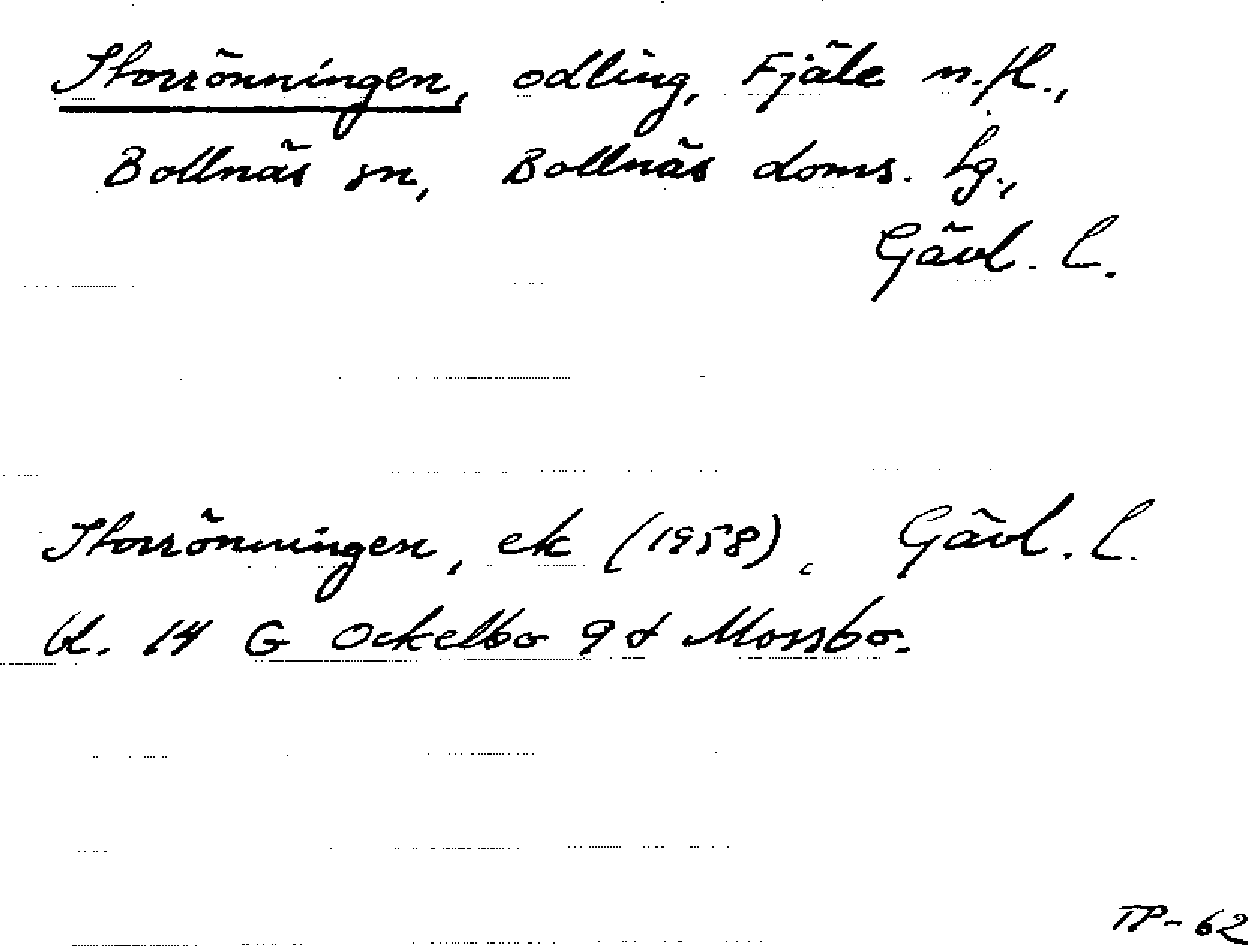 Storrönningen, odling, Fjäle m.fl.,
Bollnäs sn, Bollnäs doms. tg.,
Gävl. l.
Storrönningen, ek (1958), Gävl. l.
bl. 14 G Ockelbo 9 d Mossbo.
TP-62